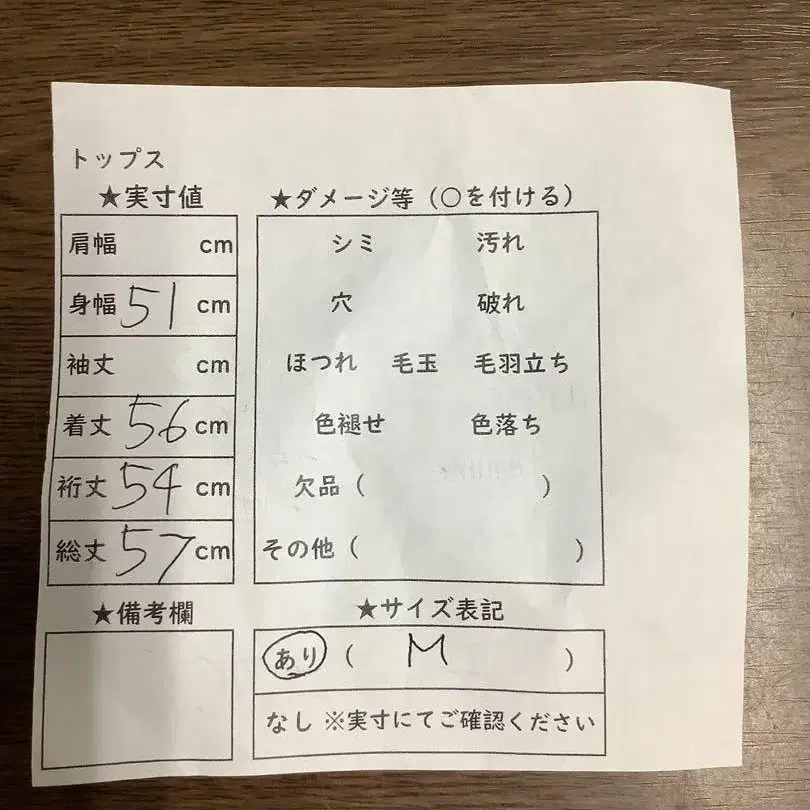 トップス
★実寸値
肩幅 cm
身幅 51 cm
袖丈 cm
着丈 56 cm
裄丈 54 cm
総丈 57 cm
★備考欄
★ダメージ等（○を付ける）
シミ 汚れ
穴 破れ
ほつれ 毛玉 毛羽立ち
色褪せ 色落ち
欠品（ ）
その他（ ）
★サイズ表記
あり（ M ）
なし ※実寸にてご確認ください